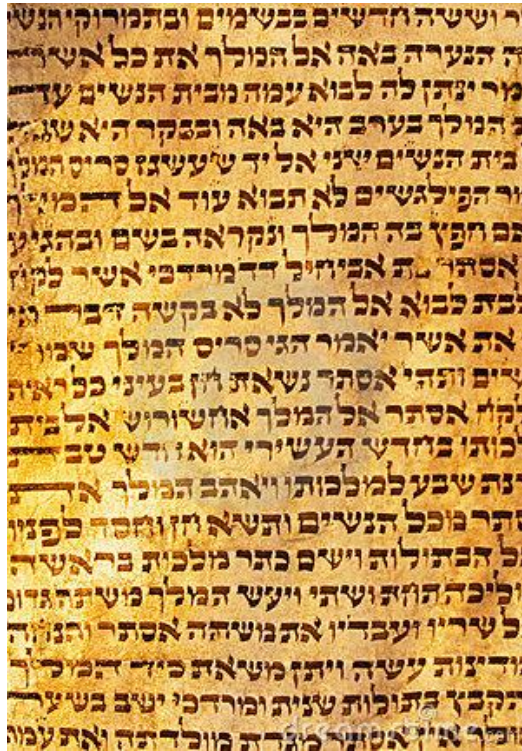 וששה חדשים בבשמים ובתמרוקי הנשי
ה הנערה באה אל המלך את כל אשר
מר ינתן לה לבוא עמה מבית הנשים עד
המלך בערב היא באה ובבקר היא
בית הנשים שני אל יד שעשגז סריס המל
הפילגשים לא תבוא עוד אל
חפץ בה המלך ונקראה בשם ובהגיע
אסתר בת אביחיל דד מרדכי אשר
לבוא אל המלך לא בקשה דבר
את אשר יאמר הגי סריס המלך
ותהי אסתר נשאת חן בעיני כל
אסתר אל המלך אחשורוש אל בית
כותו בחדש העשירי הוא חדש טבת
נת שבע למלכותו ויאהב המלך את
תר מכל הנשים ותשא חן וחסד לפניו
ל הבתולות וישם כתר מלכות בראשה
ליכה תחת ושתי ויעש המלך משתה גדו
ל שריו ועבדיו את משתה אסתר והנחה
דינות עשה ויתן משאת כיד המלך
הקבץ בתולות שנית ומרדכי ישב בשער
אסתר מגדת מולדתה ואת עמה